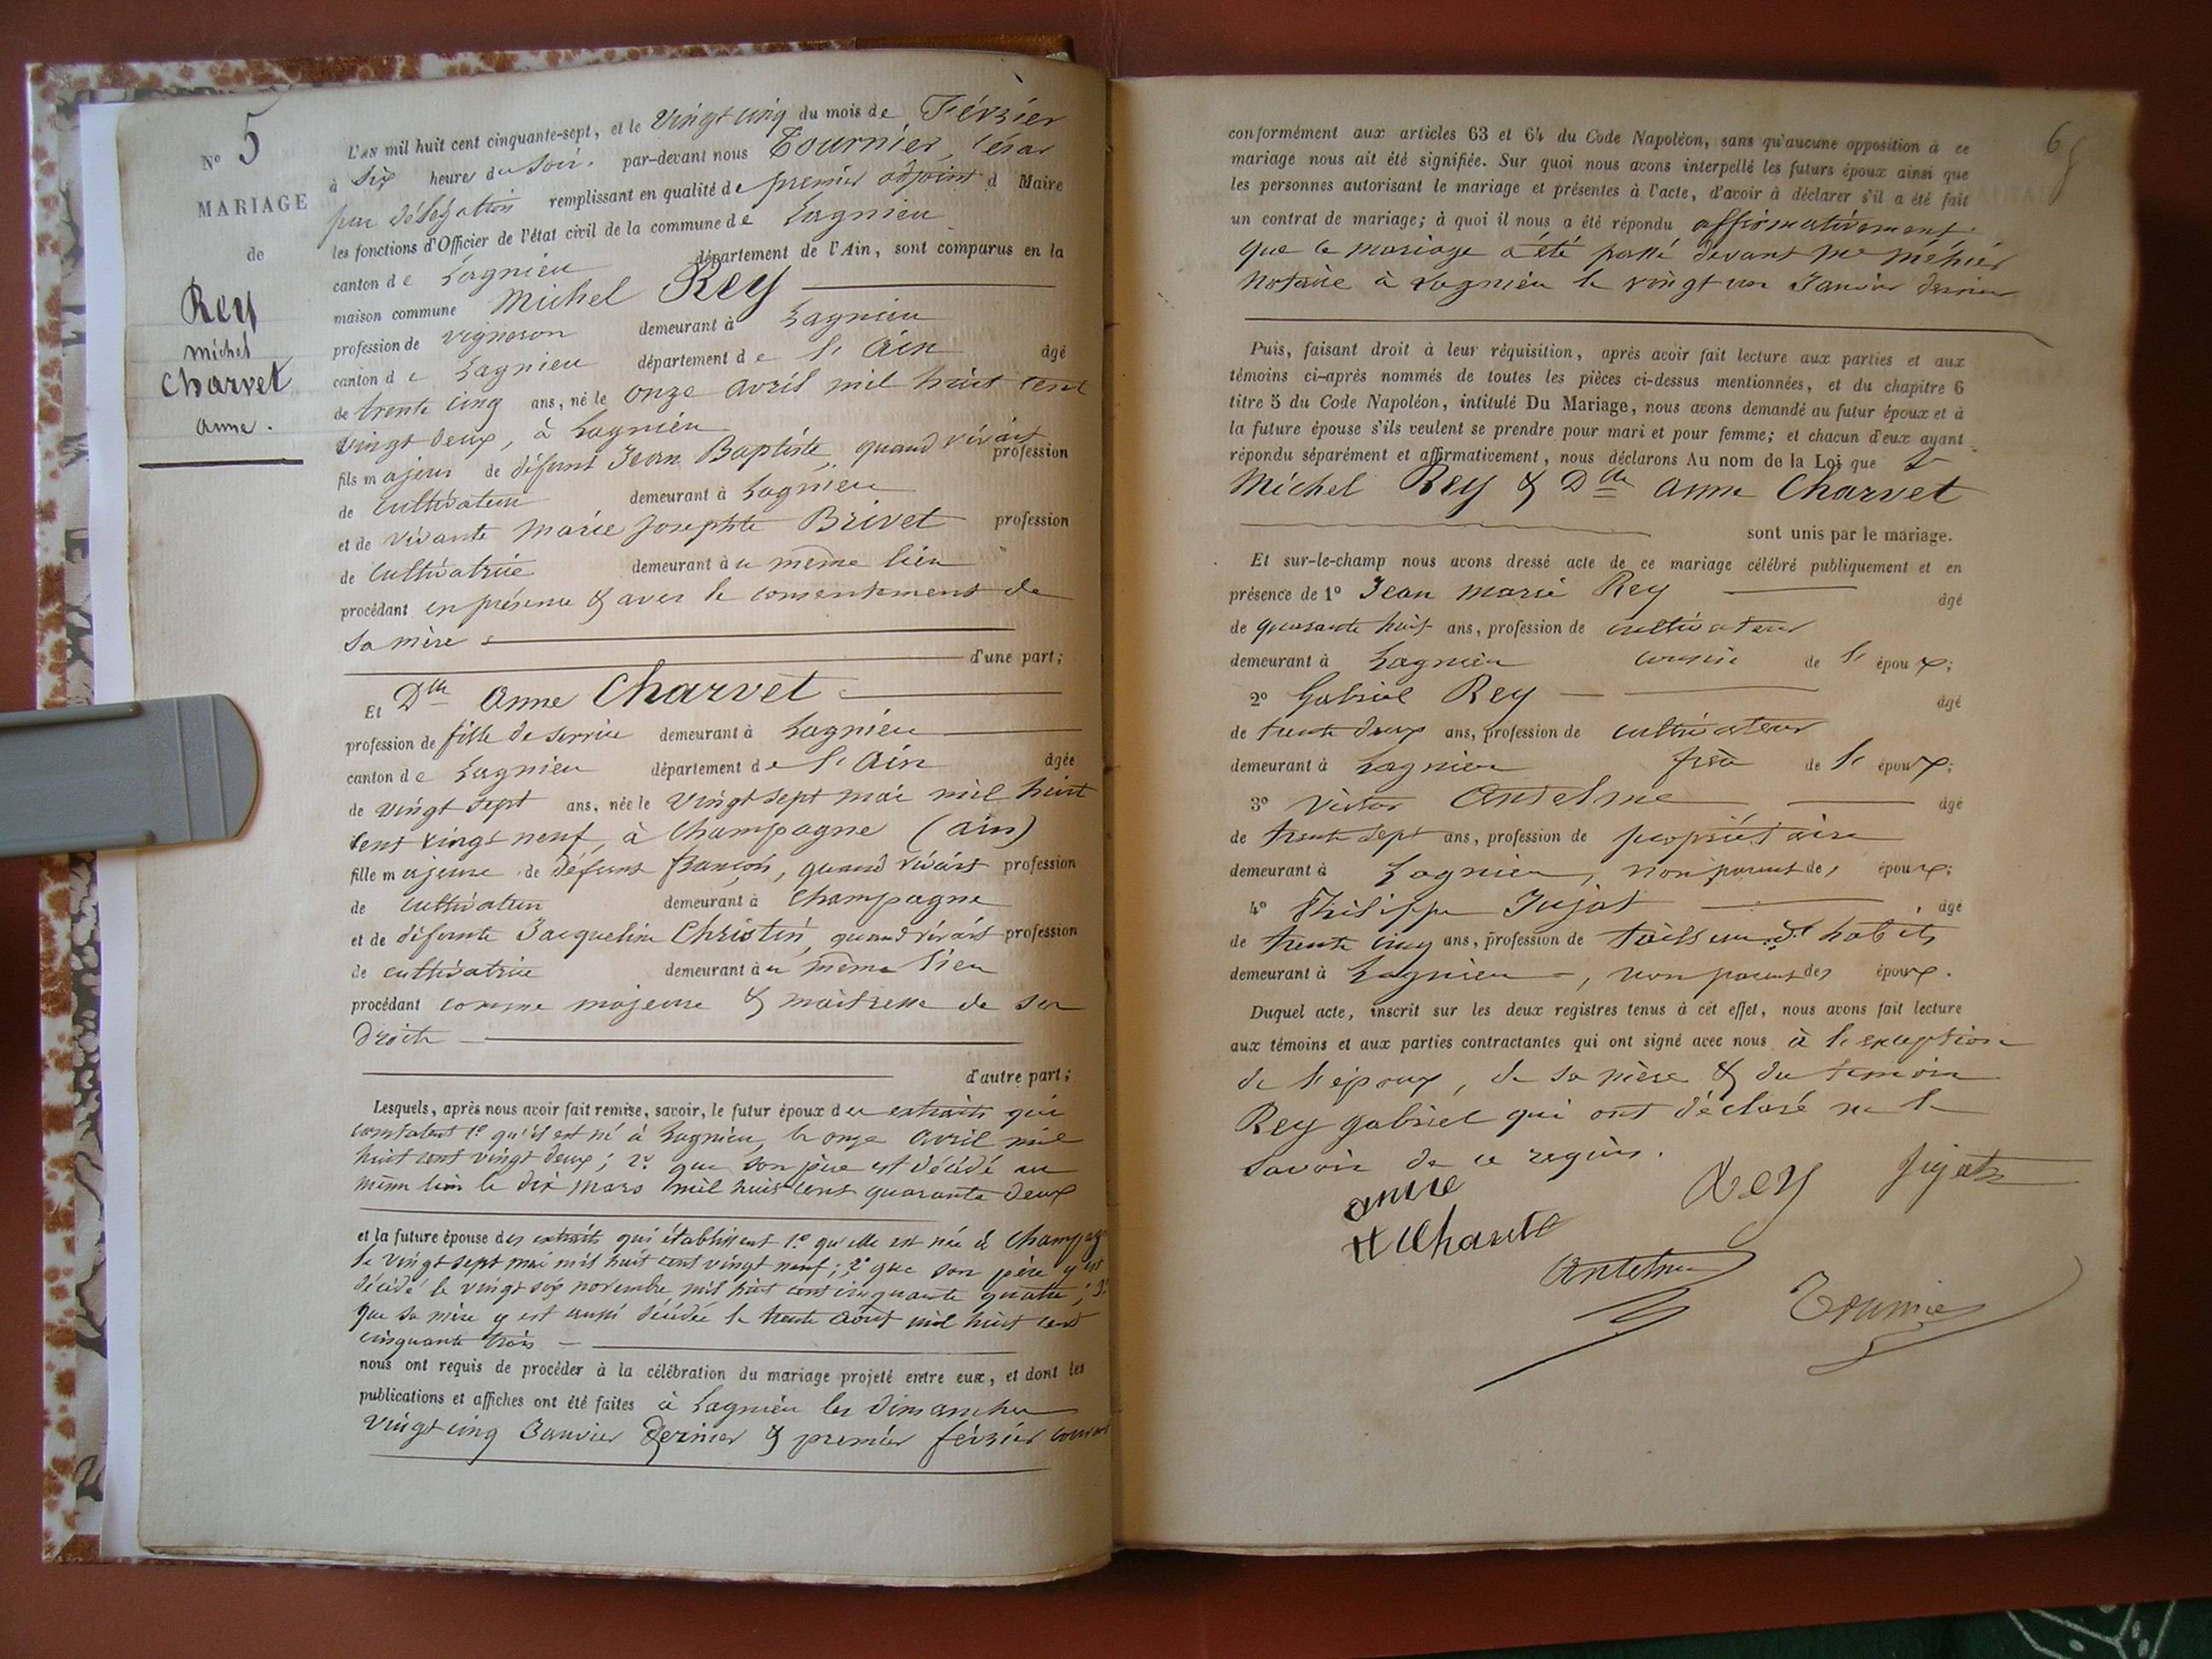 N° 5
MARIAGE
de
Rey
michel
Charvet
anne.
L'AN mil huit cent cinquante-sept, et le vingt cinq du mois de Février
à six heures du soir, par-devant nous Tournier, César
par délégation remplissant en qualité de premier adjoint d Maire
les fonctions d'Officier de l'état civil de la commune de Lagnieu
canton de Lagnieu département de l'Ain, sont comparus en la
maison commune Michel Rey
profession de vigneron demeurant à Lagnieu
canton de Lagnieu département de l'Ain âgé
de trente cinq ans, né le onze avril mil huit cent
vingt deux, à Lagnieu
fils majeur de défunt Jean Baptiste, quand vivait profession
de cultivateur demeurant à Lagnieu
et de vivante Marie Josephte Brivet profession
de cultivatrice demeurant au même lieu
procédant en présence & avec le consentement de
sa mère
d'une part;
Et Dlle Anne Charvet
profession de fille de service demeurant à Lagnieu
canton de Lagnieu département de l'Ain âgée
de vingt sept ans, née le vingt sept mai mil huit
cent vingt neuf, à Champagne (ain)
fille majeure de défunt françois, quand vivait profession
de cultivateur demeurant à Champagne
et de défunte Jacqueline Christin, quand vivait profession
de cultivatrice demeurant au même lieu
procédant comme majeure & maitresse de ses
droits
d'autre part;
Lesquels, après nous avoir fait remise, savoir, le futur époux des extraits qui
constatent 1° qu'il est né à Lagnieu, le onze avril mil
huit cent vingt deux; 2° que son père est décédé au
même lieu le dix mars mil huit cent quarante deux
et la future épouse des extraits qui établissent 1° qu'elle est née à Champagne
le vingt sept mai mil huit cent vingt neuf; 2° que son père y est
décédé le vingt six novembre mil huit cent cinquante quatre; 3°
que sa mère y est aussi décédée le trente août mil huit cent
cinquante trois
nous ont requis de procéder à la célébration du mariage projeté entre eux, et dont les
publications et affiches ont été faites à Lagnieu les dimanches
vingt cinq Janvier dernier & premier février courant
6
conformément aux articles 63 et 64 du Code Napoléon, sans qu'aucune opposition à ce
mariage nous ait été signifiée. Sur quoi nous avons interpellé les futurs époux ainsi que
les personnes autorisant le mariage et présentes à l'acte, d'avoir à déclarer s'il a été fait
un contrat de mariage; à quoi il nous a été répondu affirmativement
que le mariage a été passé devant Me Méhier
Notaire à Lagnieu le vingt un Janvier dernier
Puis, faisant droit à leur réquisition, après avoir fait lecture aux parties et aux
témoins ci-après nommés de toutes les pièces ci-dessus mentionnées, et du chapitre 6
titre 5 du Code Napoléon, intitulé Du Mariage, nous avons demandé au futur époux et à
la future épouse s'ils veulent se prendre pour mari et pour femme; et chacun d'eux ayant
répondu séparément et affirmativement, nous déclarons Au nom de la Loi que Sr
Michel Rey & Dlle Anne Charvet
sont unis par le mariage.
Et sur-le-champ nous avons dressé acte de ce mariage célébré publiquement et en
présence de 1° Jean Marie Rey âgé
de quarante huit ans, profession de cultivateur
demeurant à Lagnieu cousin de l'époux;
2° Gabriel Rey âgé
de trente deux ans, profession de cultivateur
demeurant à Lagnieu frère de l'époux;
3° Victor Anselme âgé
de trente sept ans, profession de propriétaire
demeurant à Lagnieu, non parent des époux;
4° Philippe Jujat âgé
de trente cinq ans, profession de tailleur d'habits
demeurant à Lagnieu, non parent des époux.
Duquel acte, inscrit sur les deux registres tenus à cet effet, nous avons fait lecture
aux témoins et aux parties contractantes qui ont signé avec nous à l'exception
de l'époux, de sa mère & du témoin
Rey gabriel qui ont déclaré ne le
savoir de ce requis.
anne Rey Jujat
Anselme Tournier